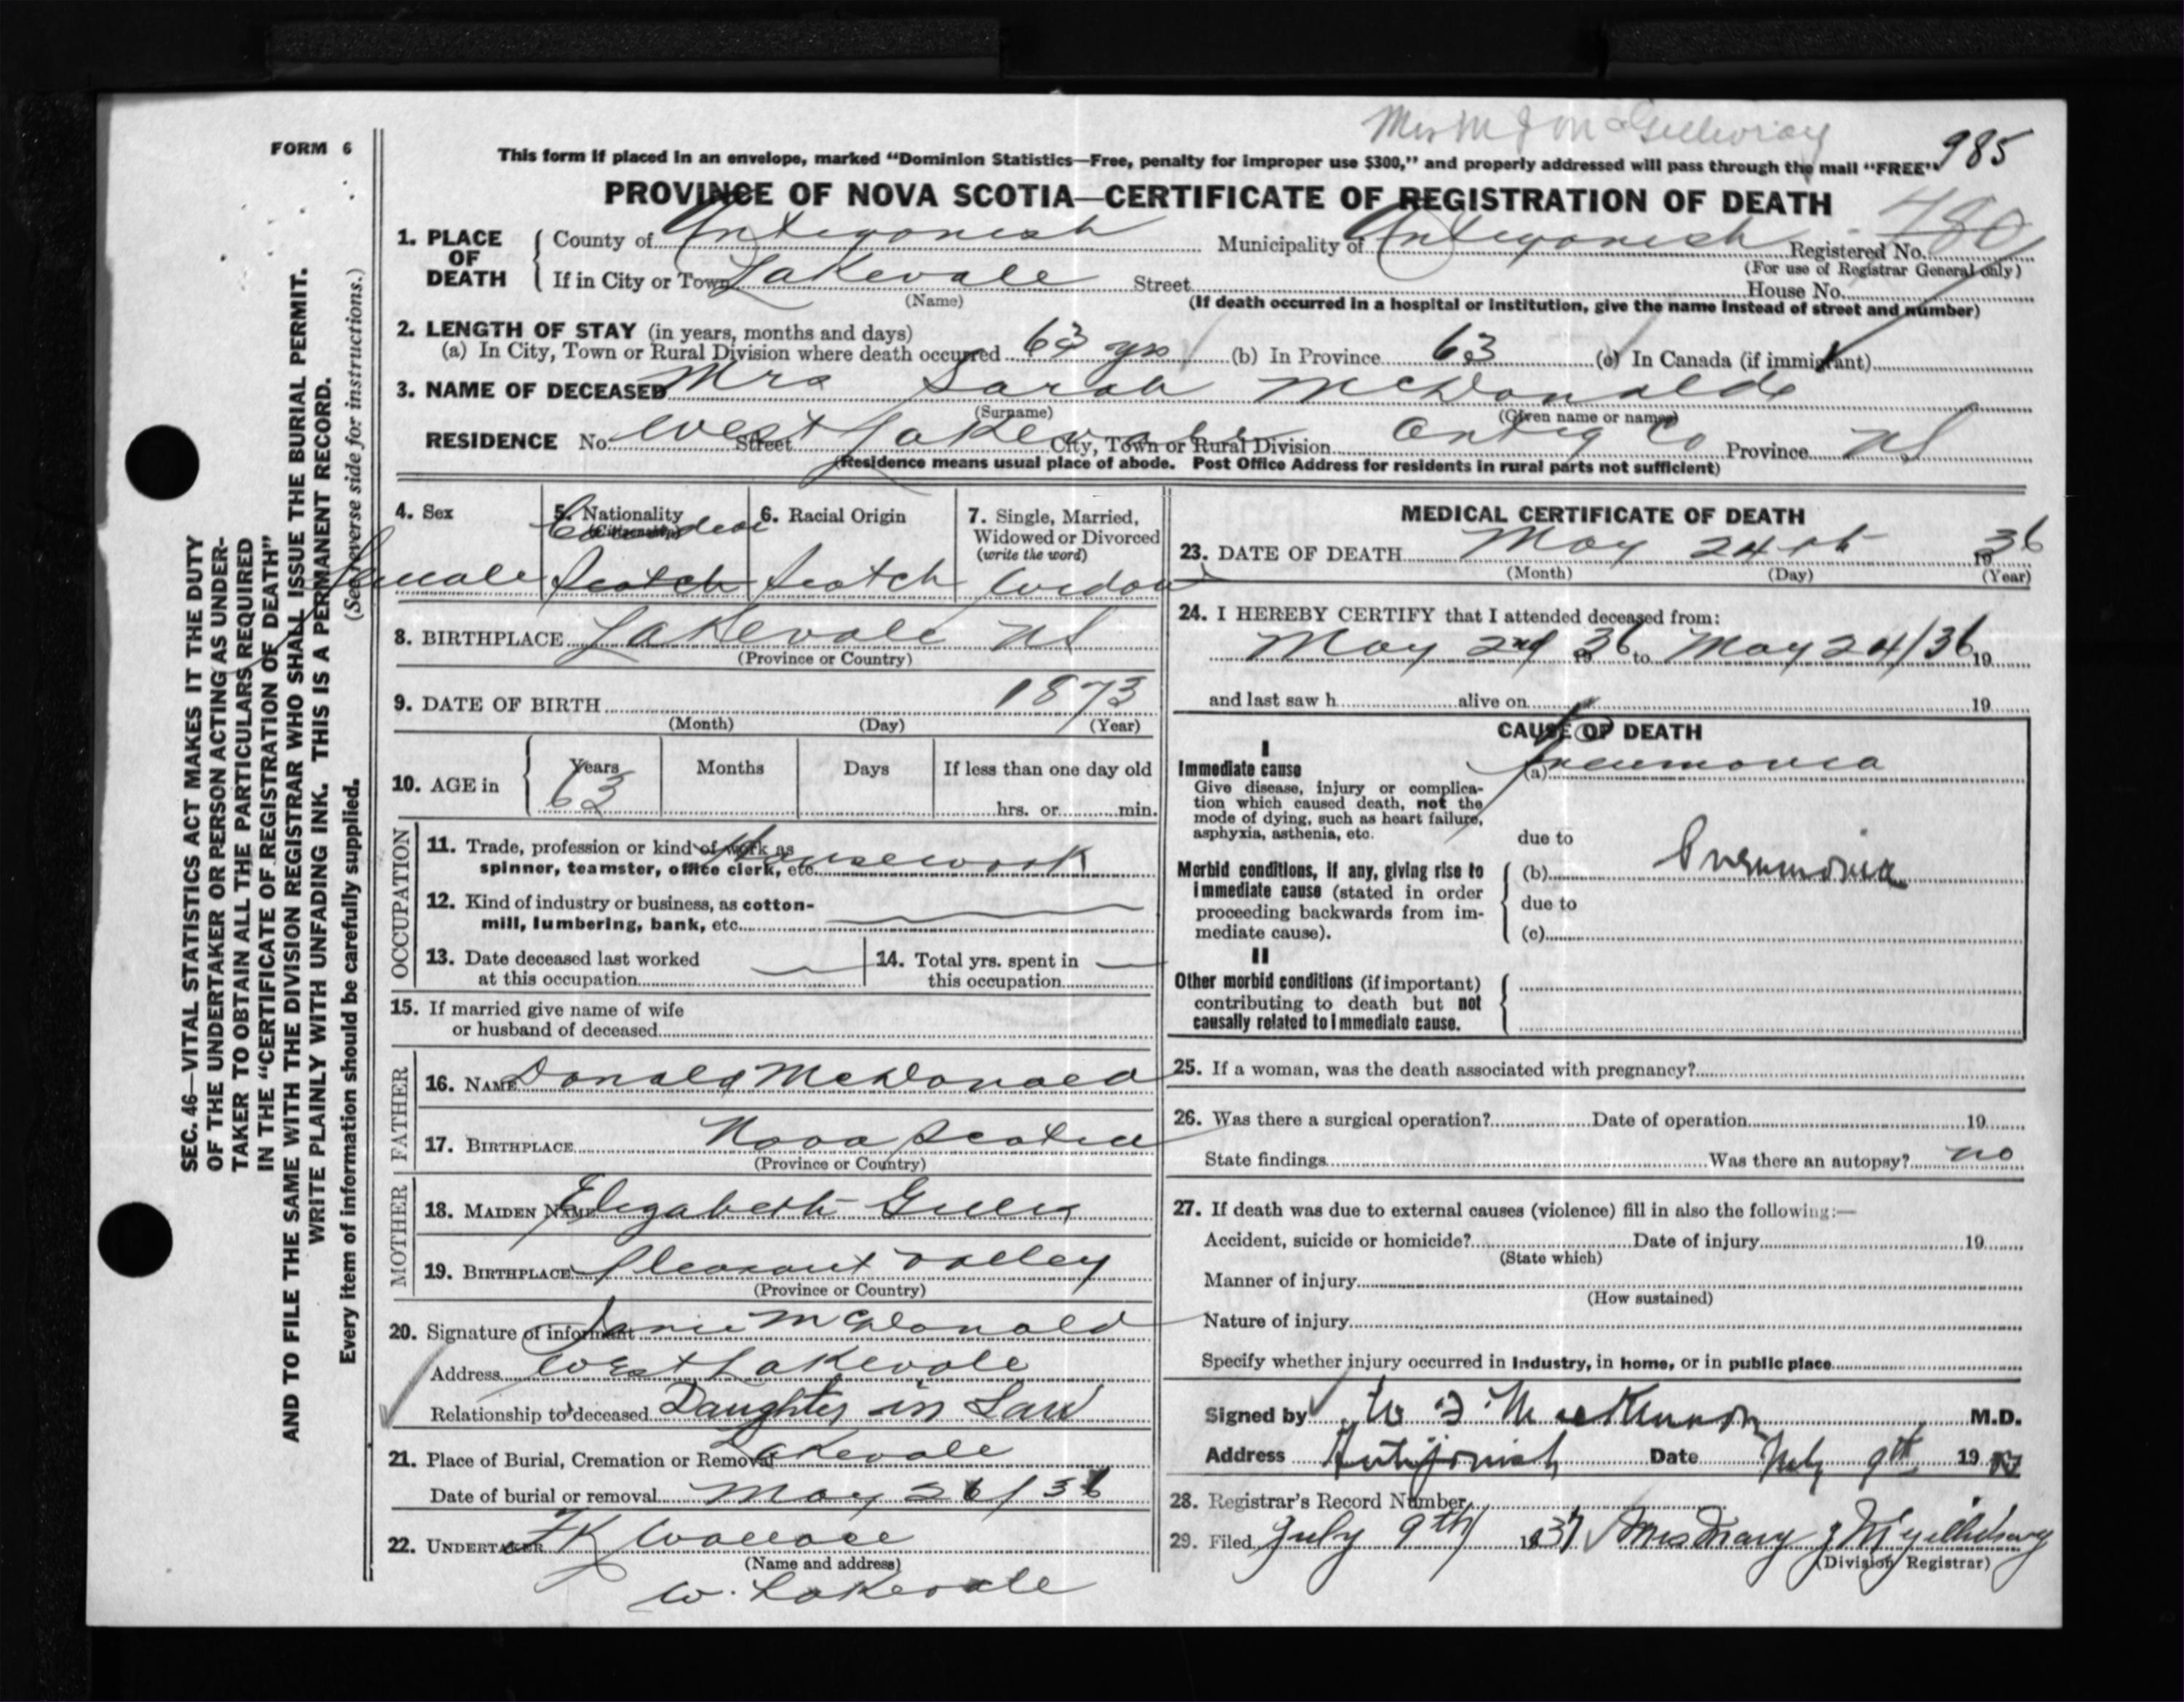 FORM 6
985
This form if placed in an envelope, marked “Dominion Statistics—Free, penalty for improper use $300,” and properly addressed will pass through the mail “FREE”
PROVINCE OF NOVA SCOTIA—CERTIFICATE OF REGISTRATION OF DEATH
480
1. PLACE OF DEATH County of Antigonish Municipality of Antigonish Registered No.
(For use of Registrar General only)
If in City or Town Lakevale Street House No.
(Name) (If death occurred in a hospital or institution, give the name instead of street and number)
2. LENGTH OF STAY (in years, months and days)
(a) In City, Town or Rural Division where death occurred 63 yrs (b) In Province 63 (c) In Canada (if immigrant)
3. NAME OF DECEASED Mrs Sarah McDonald
(Surname) (Given name or names)
RESIDENCE No. West Lakevale Street City, Town or Rural Division Antig Co Province NS
(Residence means usual place of abode. Post Office Address for residents in rural parts not sufficient)
4. Sex female
5. Nationality (Citizenship) Canadian Scotch
6. Racial Origin Scotch
7. Single, Married, Widowed or Divorced (write the word) Widow
8. BIRTHPLACE Lakevale NS
(Province or Country)
9. DATE OF BIRTH 1873
(Month) (Day) (Year)
10. AGE in Years 63 Months Days If less than one day old
hrs. or min.
OCCUPATION
11. Trade, profession or kind of work as
spinner, teamster, office clerk, etc. Housework
12. Kind of industry or business, as cotton-
mill, lumbering, bank, etc.
13. Date deceased last worked
at this occupation
14. Total yrs. spent in
this occupation
15. If married give name of wife
or husband of deceased
FATHER
16. NAME Donald McDonald
17. BIRTHPLACE Nova Scotia
(Province or Country)
MOTHER
18. MAIDEN NAME Elizabeth Gillis
19. BIRTHPLACE Pleasant Valley
(Province or Country)
20. Signature of informant McDonald
Address West Lakevale
Relationship to deceased Daughter in Law
21. Place of Burial, Cremation or Removal Lakevale
Date of burial or removal May 26/36
22. UNDERTAKER K Wallace
(Name and address)
W. Lakevale
MEDICAL CERTIFICATE OF DEATH
23. DATE OF DEATH May 24th 1936
(Month) (Day) (Year)
24. I HEREBY CERTIFY that I attended deceased from:
May 2nd 1936 to May 24/36 19
and last saw h alive on 19
CAUSE OF DEATH
I
Immediate cause (a) Pneumonia
Give disease, injury or complica-
tion which caused death, not the
mode of dying, such as heart failure,
asphyxia, asthenia, etc.
due to
Morbid conditions, if any, giving rise to
immediate cause (stated in order
proceeding backwards from im-
mediate cause).
(b) Pneumonia
due to
(c)
II
Other morbid conditions (if important)
contributing to death but not
causally related to immediate cause.
25. If a woman, was the death associated with pregnancy?
26. Was there a surgical operation? Date of operation 19
State findings Was there an autopsy? no
27. If death was due to external causes (violence) fill in also the following:—
Accident, suicide or homicide? Date of injury 19
(State which)
Manner of injury
(How sustained)
Nature of injury
Specify whether injury occurred in Industry, in home, or in public place
Signed by MacKinnon M.D.
Address Antigonish Date July 9th 19 37
28. Registrar's Record Number
29. Filed July 9th 1937 Mrs Mary J McGillivray
(Division Registrar)
SEC. 46—VITAL STATISTICS ACT MAKES IT THE DUTY
OF THE UNDERTAKER OR PERSON ACTING AS UNDER-
TAKER TO OBTAIN ALL THE PARTICULARS REQUIRED
IN THE “CERTIFICATE OF REGISTRATION OF DEATH”
AND TO FILE THE SAME WITH THE DIVISION REGISTRAR WHO SHALL ISSUE THE BURIAL PERMIT.
WRITE PLAINLY WITH UNFADING INK. THIS IS A PERMANENT RECORD.
Every item of information should be carefully supplied. (See reverse side for instructions.)